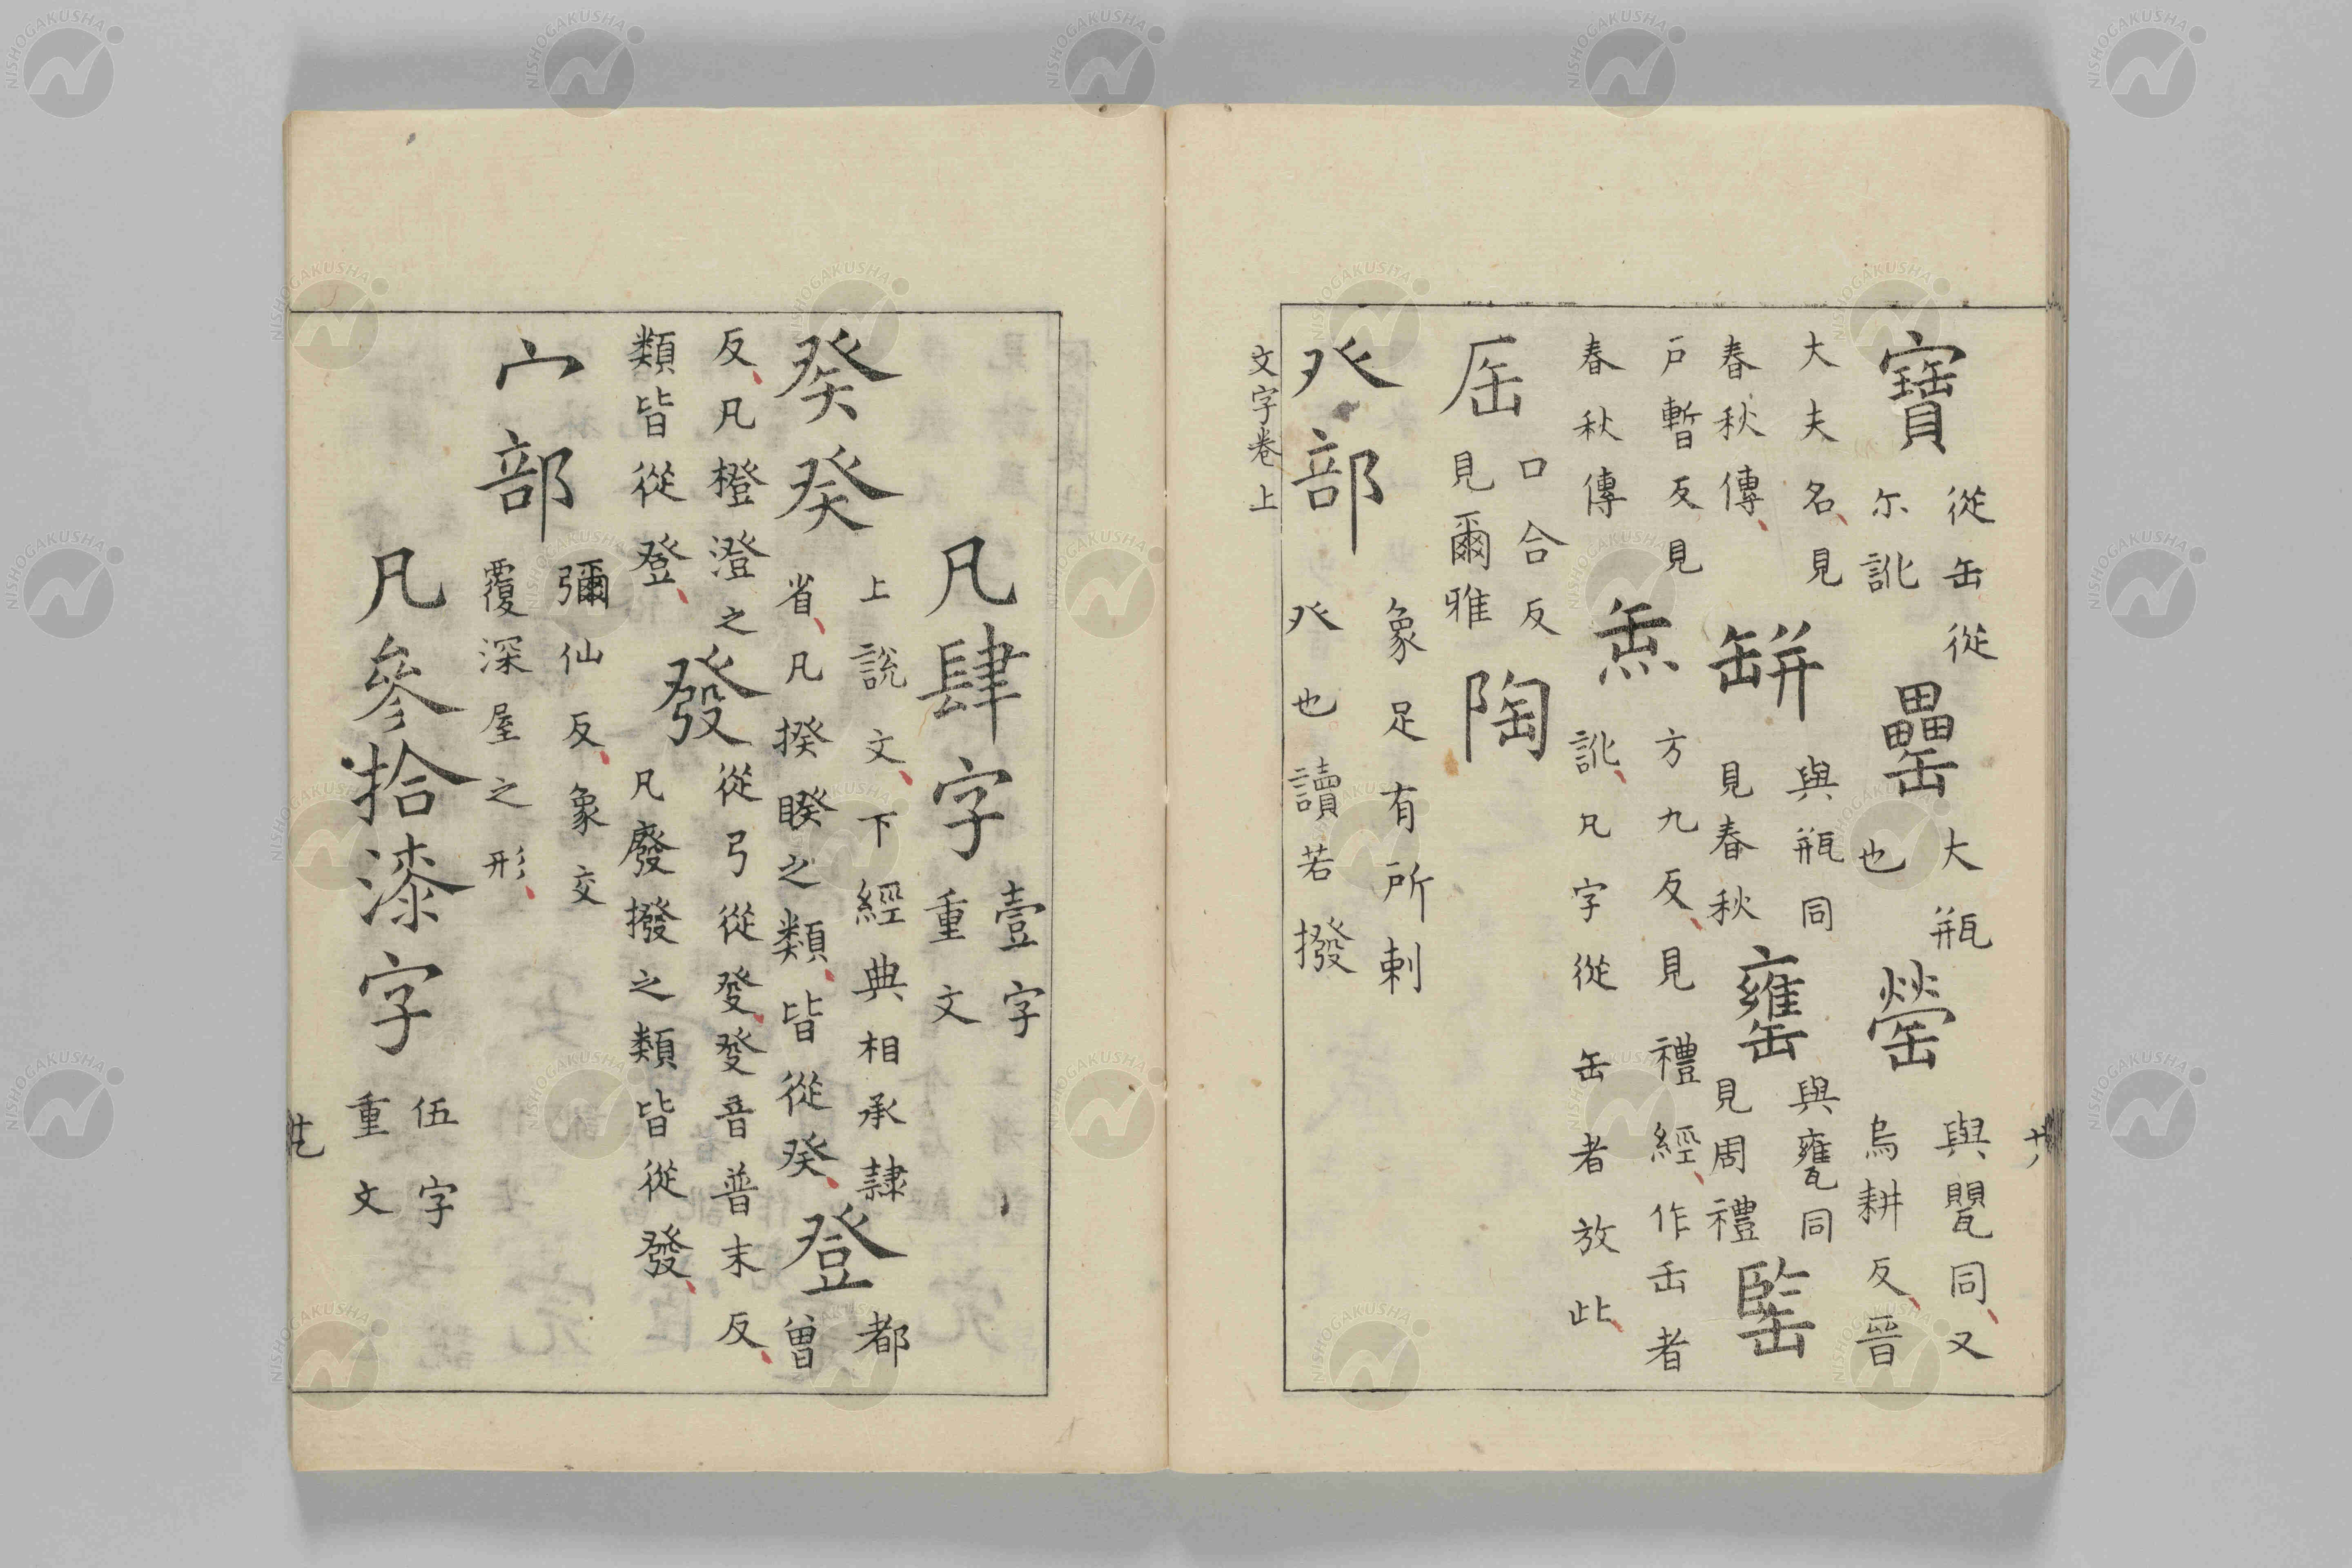 寶從缶從尓訛罍大瓶也罃與甖同又烏耕反晉
大夫名見春秋傳缾與瓶同見春秋罋與甕同見周禮
戶暫反見春秋傳缹方九反見禮經作缶者訛凡字從缶者放此
口合反見爾雅陶
癶部象足有所剌癶也讀若撥
文字卷上
凡肆字壹字重文
癸上說文下經典相承隸省凡揆睽之類皆從癸登都曾
反凡橙澄之類皆從登發從弓從癹癹音普末反凡廢撥之類皆從發
宀部彌仙反象交覆深屋之形
凡參拾漆字伍字重文
NISHOGAKUSHA